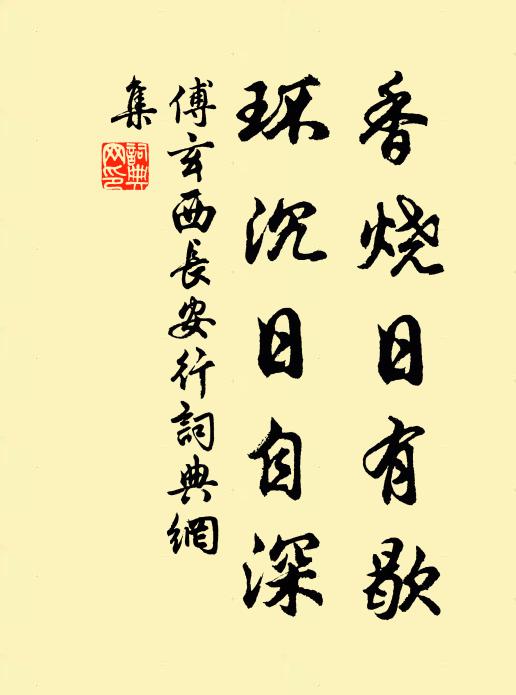 香烧日有歇
环沉日自深
傅玄西長安行詞典網
集
詞典
网印